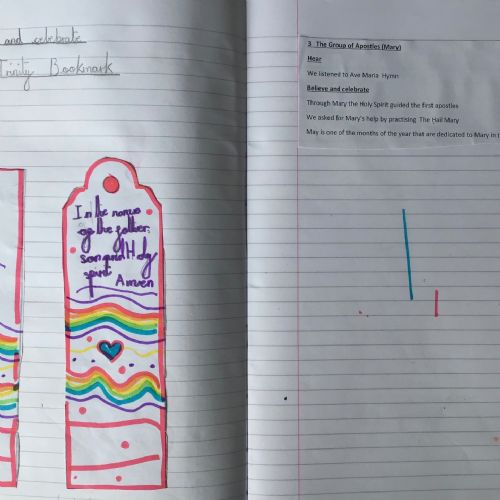 and celebrate
Trinity Bookmark
In the name
og the father,
son and Holy
spirit
Amen
3 The Group of Apostles (Mary)
Hear
We listened to Ave Maria Hymn
Believe and celebrate
Through Mary the Holy Spirit guided the first apostles
We asked for Mary's help by practising The Hail Mary
May is one of the months of the year that are dedicated to Mary in